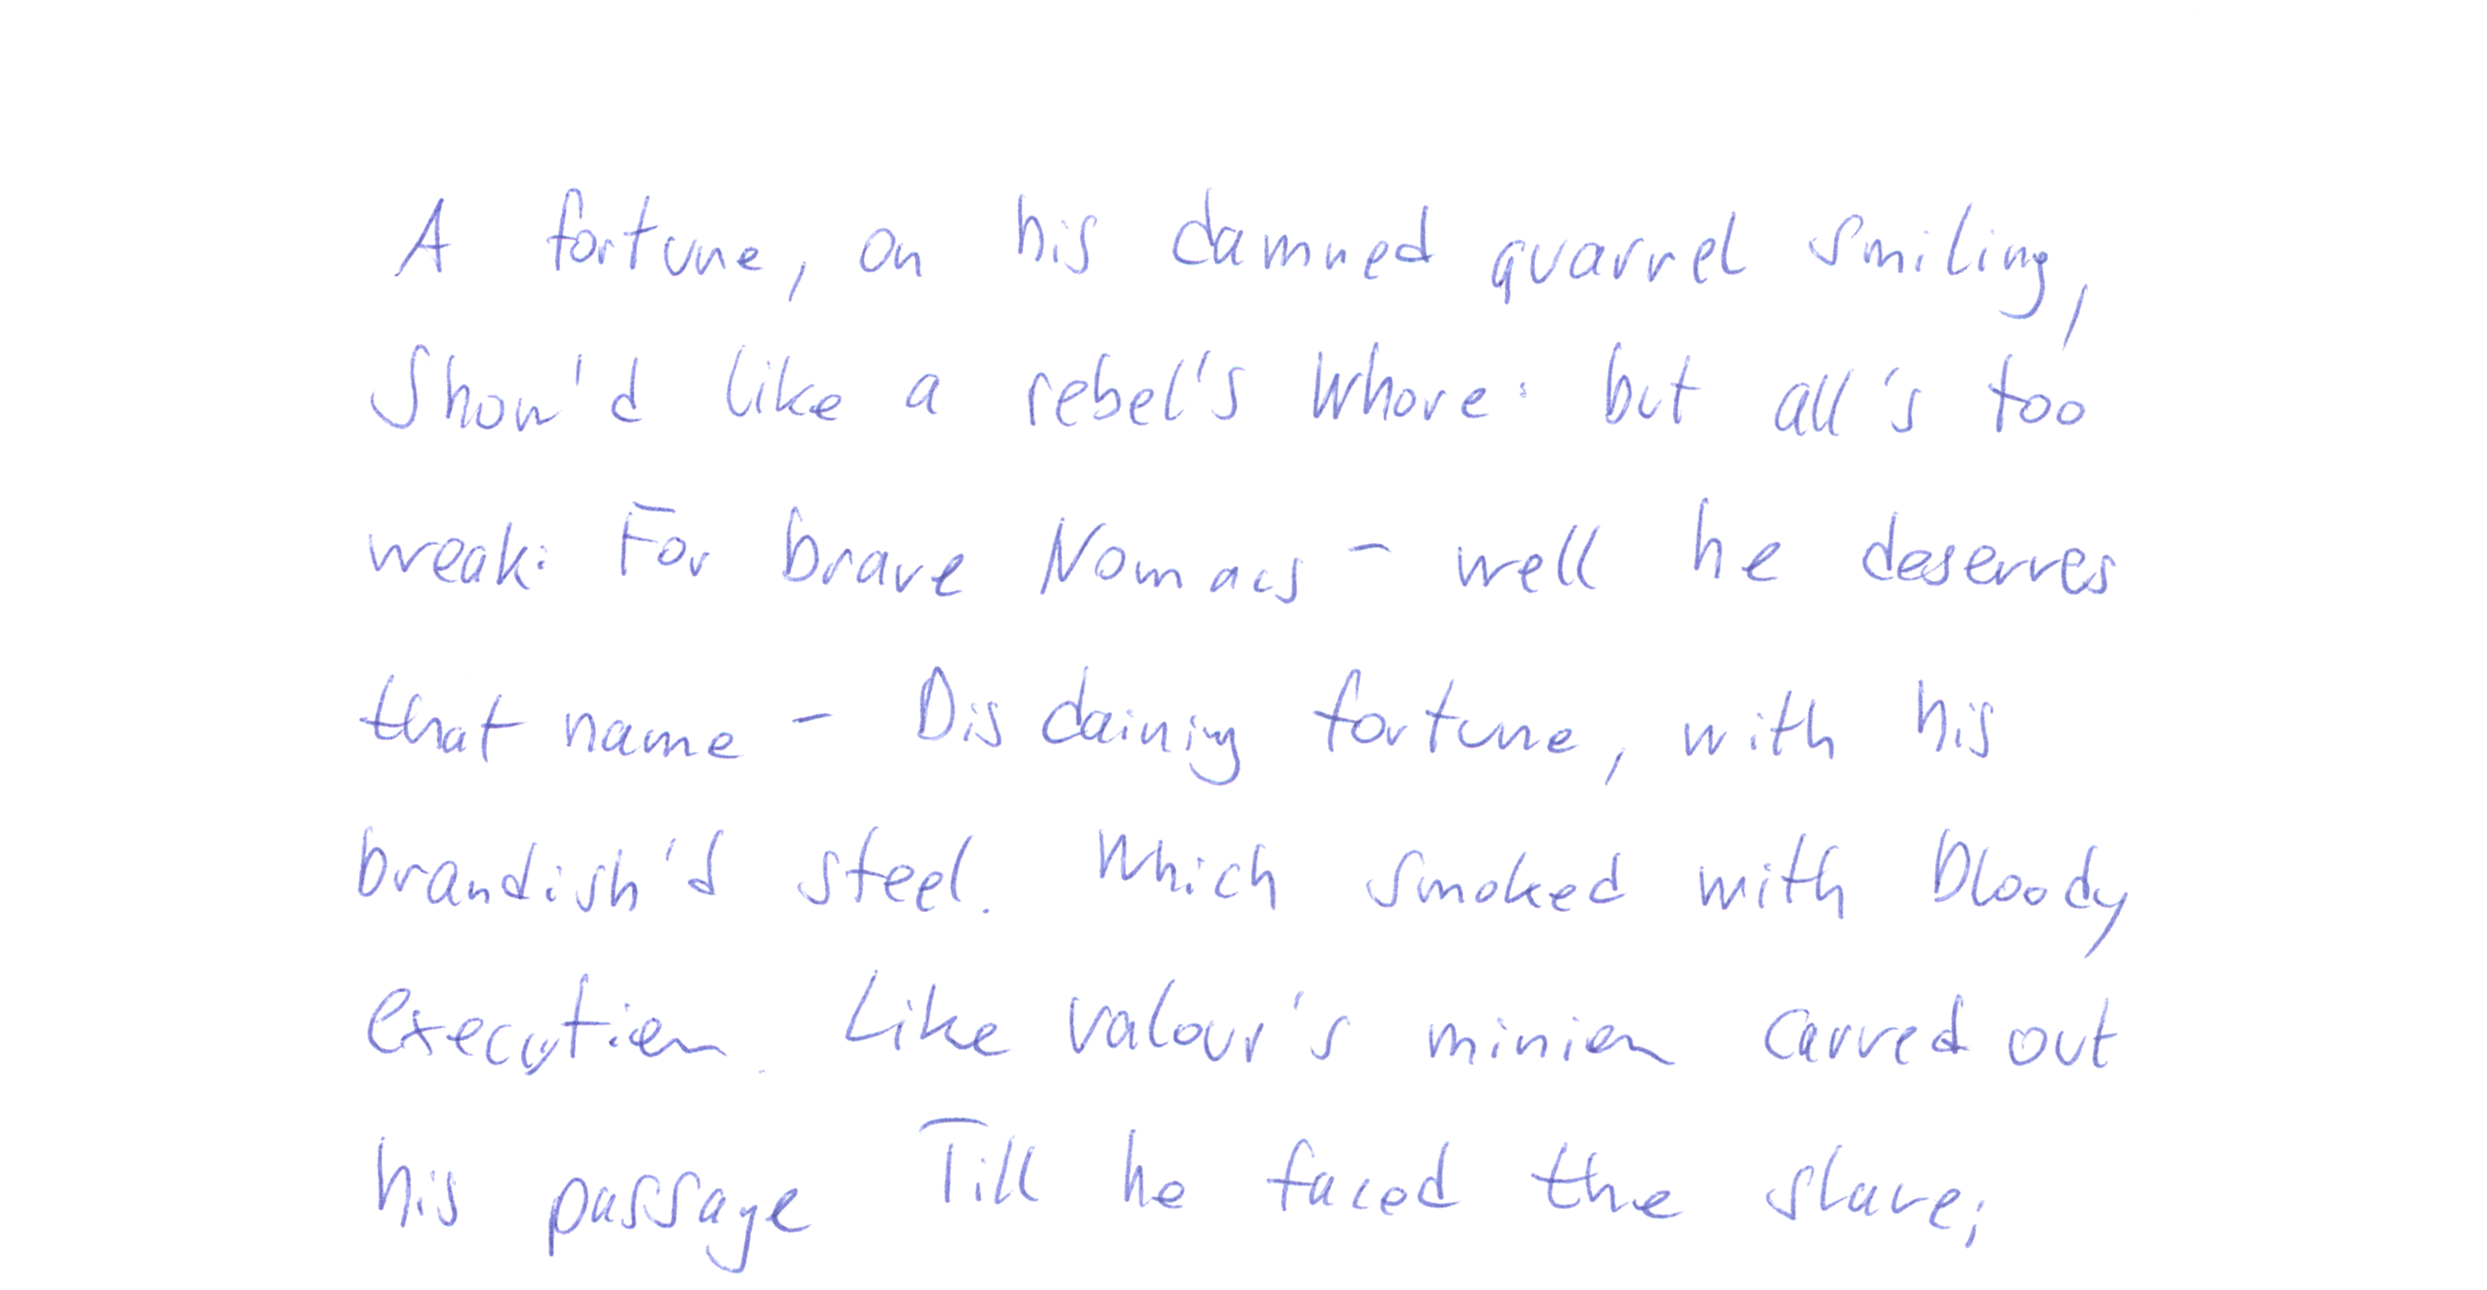 A fortune, on his damned quarrel smiling,
Show'd like a rebel's whore: but all's too
weak: For brave Nomacs - well he deserves
that name - Disdaining fortune, with his
brandish'd steel. Which smoked with bloody
execution. Like valour's minion carved out
his passage Till he faced the slave;